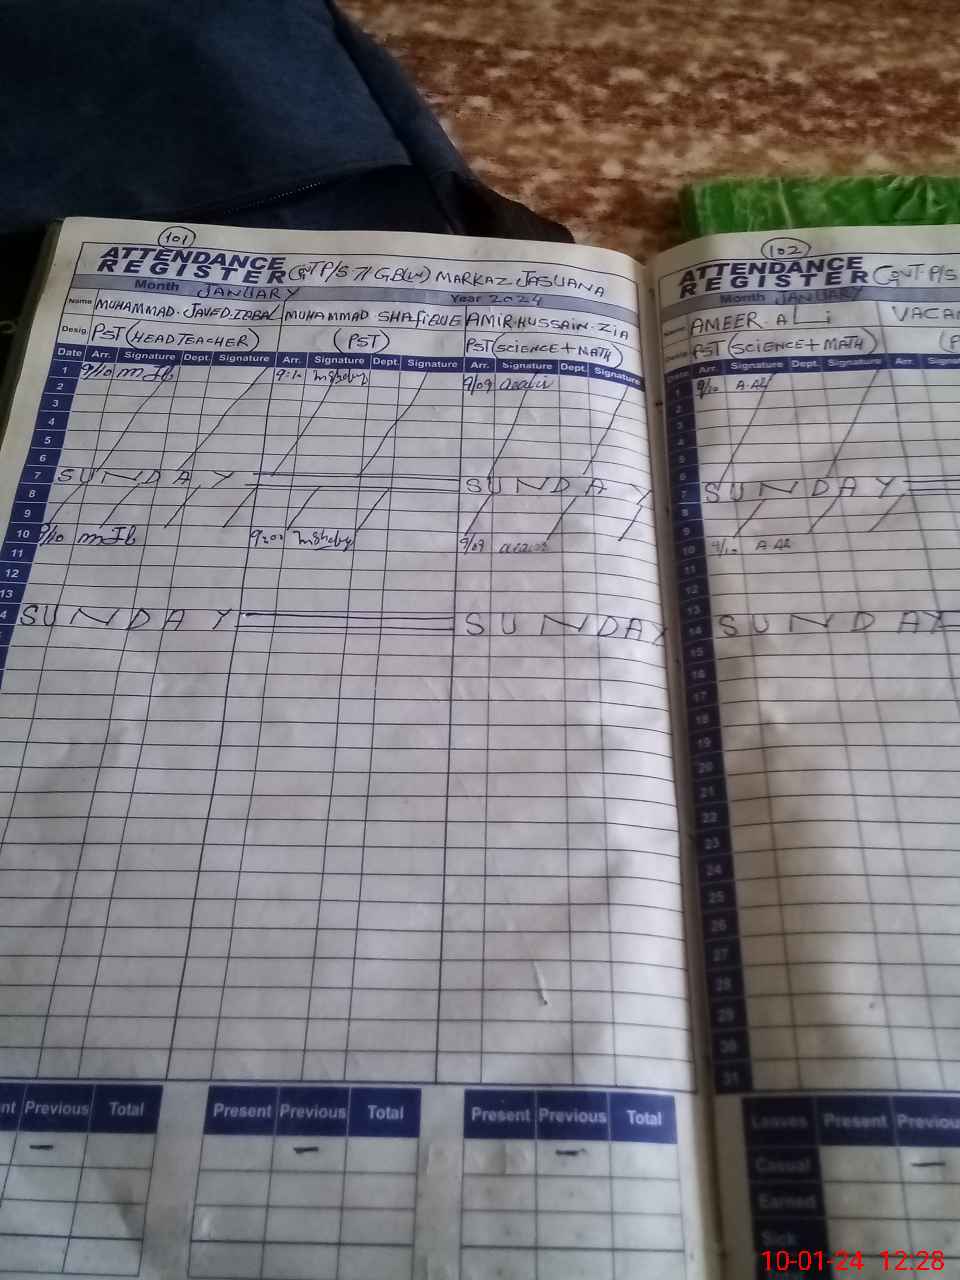 101
ATTENDANCE
REGISTER
Govt P/S 71 G.B(W) MARKAZ JASUANA
Month JANUARY Year 2024
Name MUHAMMAD JAVED.IQBAL MUHAMMAD SHAFIQUE AMIR.HUSSAIN.ZIA
Desig. PST (HEADTEACHER) (PST) PST (SCIENCE+MATH)
Date Arr. Signature Dept. Signature Arr. Signature Dept. Signature Arr. Signature Dept. Signature
1 9/10 9:10 9/09
2
3
4
5
6
7 SUNDAY SUNDAY
8
9
10 9/10 9/09
11
12
13
4 SUNDAY SUNDAY
Previous Total Present Previous Total Present Previous Total
– – –
102
ATTENDANCE
REGISTER Govt P/S
Month JANUARY
Name AMEER.ALi VACAN
PST (SCIENCE+MATH) (P
Date Arr. Signature Dept. Signature
1 9/10 A.Ali
2
3
4
5
6
7 SUNDAY
8
9
10 9/10 A Ali
11
12
13
14 SUNDAY
15
16
17
18
19
20
21
22
23
24
25
26
27
28
29
30
31
Leaves Present Previou
Casual –
Earned
Sick
10-01-24 12:28